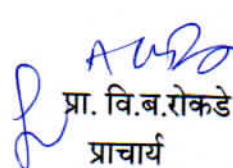 प्रा. वि.ब.रोकडे
प्राचार्य